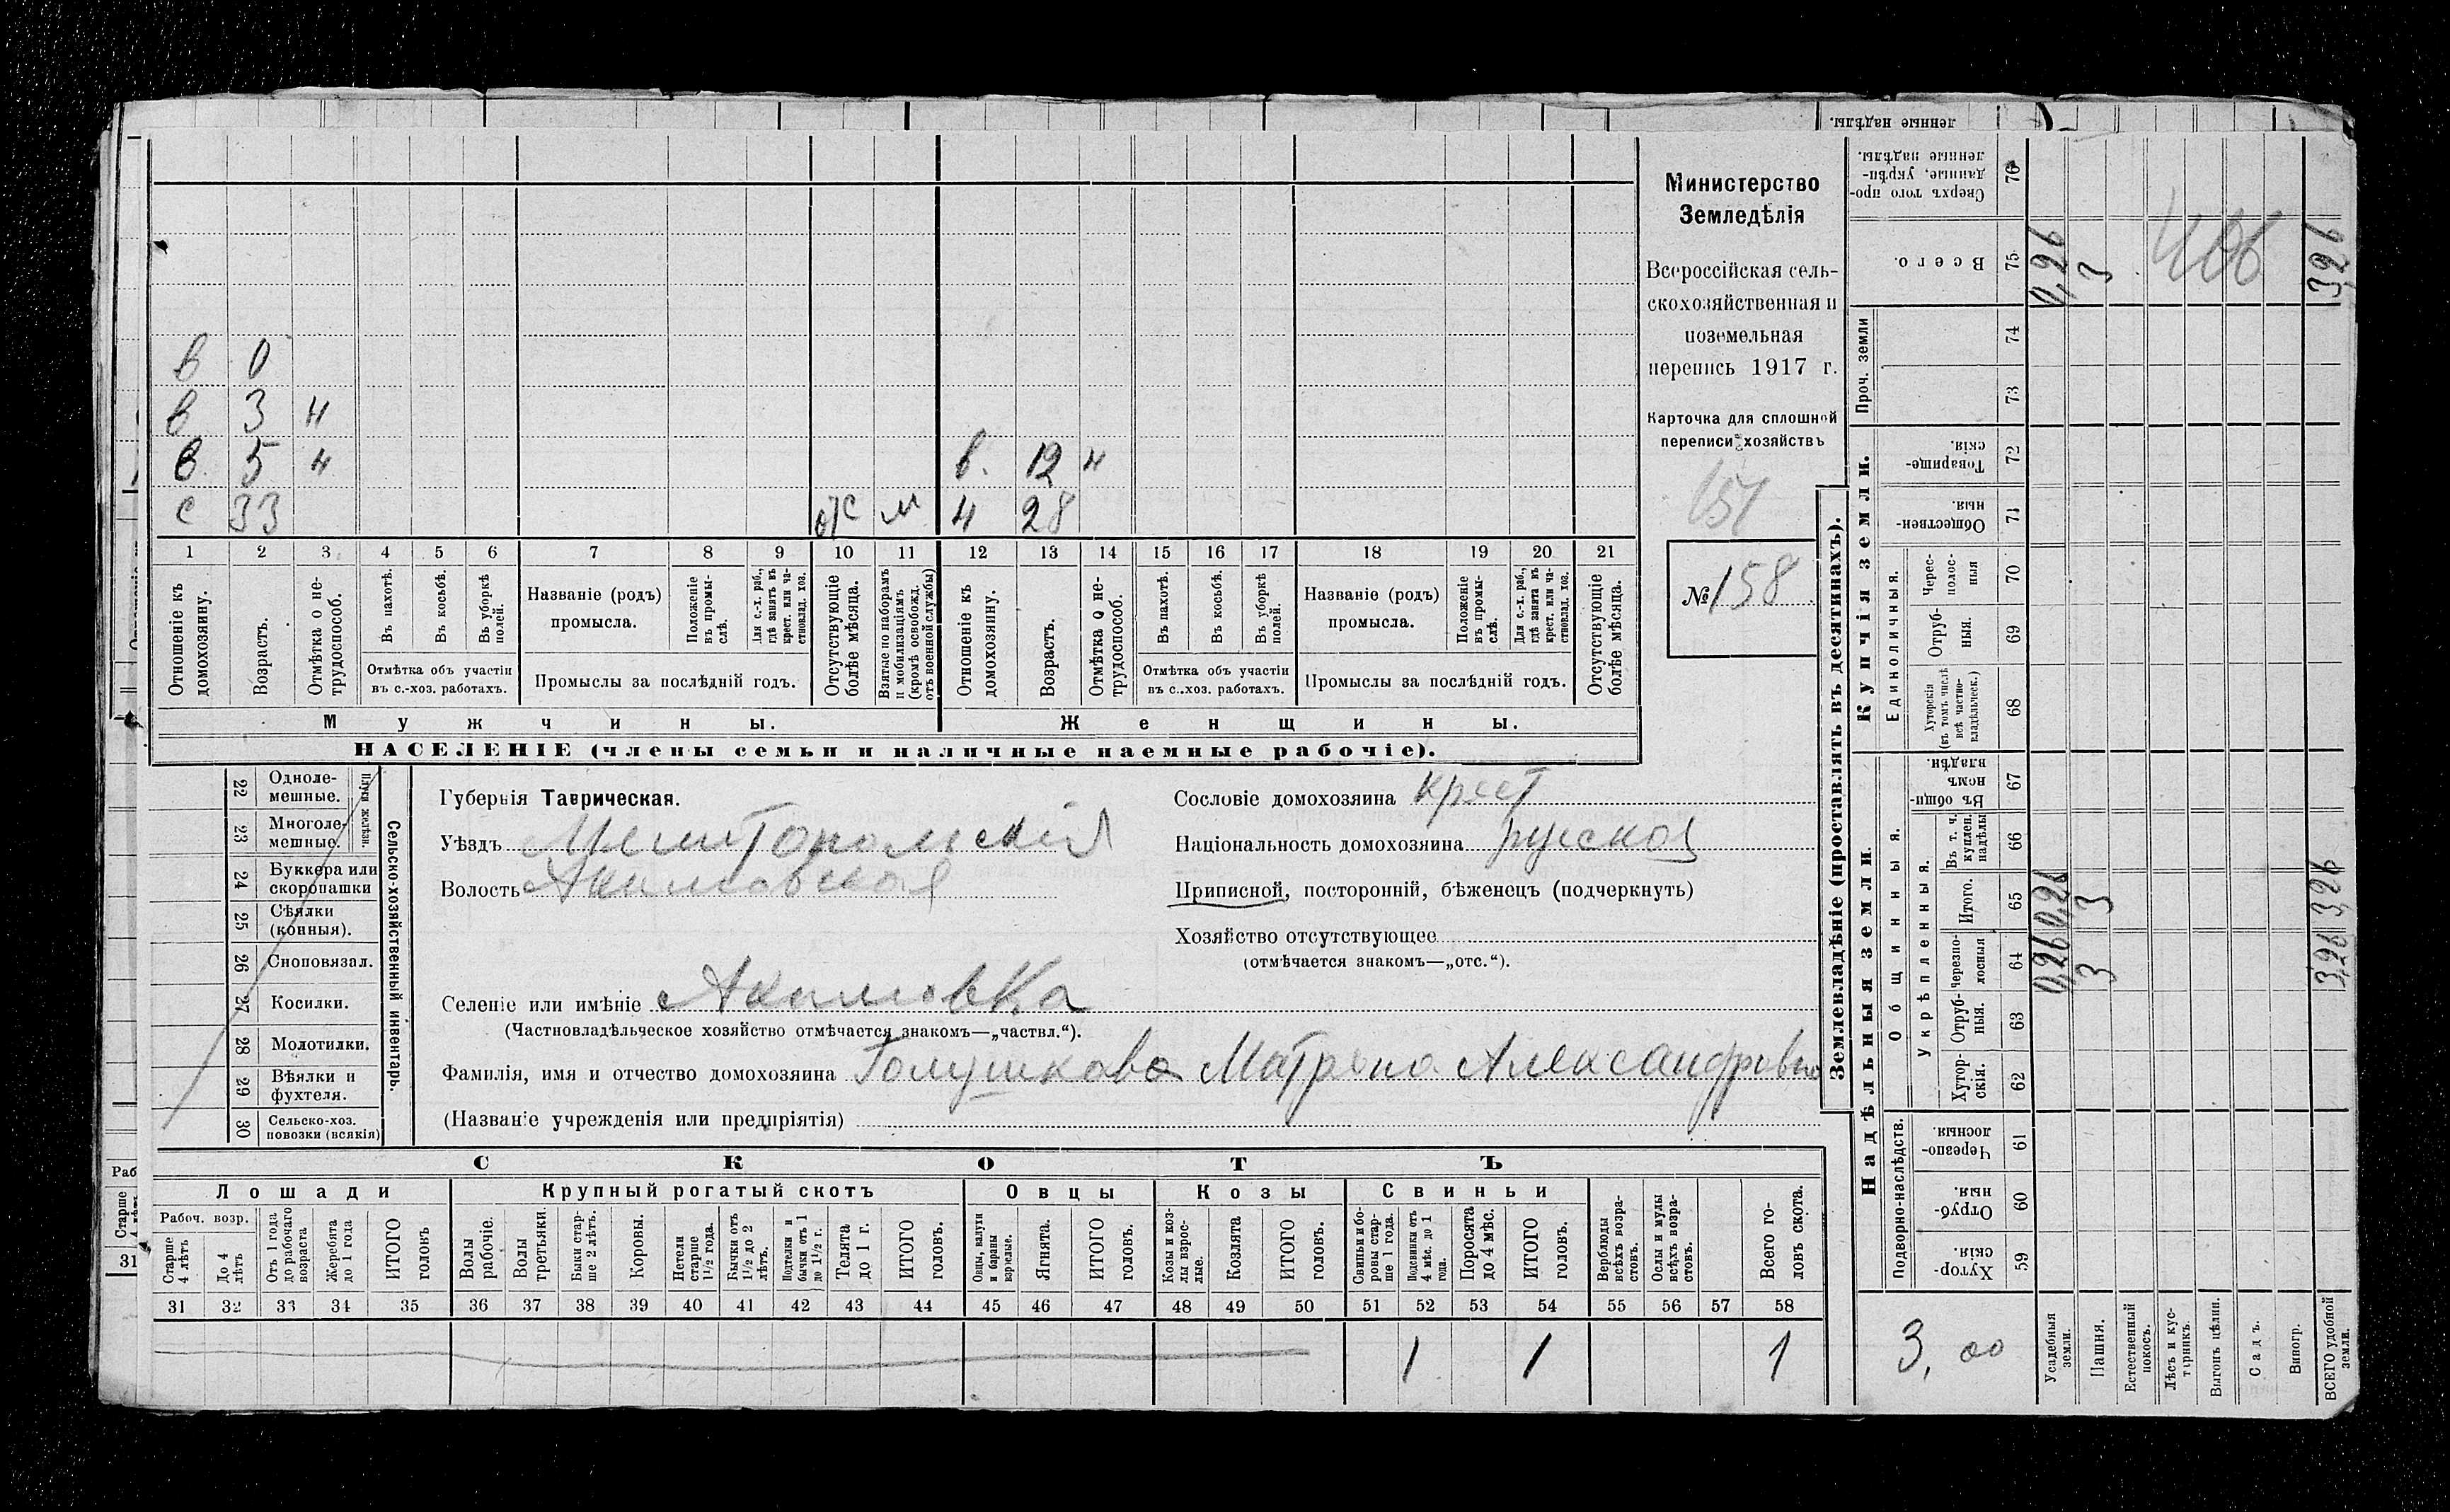 Министерство
Земледѣлія
Всероссійская сель-
скохозяйственная и
поземельная
перепись 1917 г.
Карточка для сплошной
переписи хозяйствъ
№ 158
в 0
в 3 н
в 5 н в. 12 н
с 33 отс м ч 28
1 2 3 4 5 6 7 8 9 10 11 12 13 14 15 16 17 18 19 20 21
Отношеніе къ домохозяину.
Возрастъ.
Отмѣтка о не-трудоспособ.
Въ пахотѣ.
Въ косьбѣ.
Въ уборкѣ полей.
Отмѣтка объ участіи
въ с.-хоз. работахъ.
Названіе (родъ)
промысла.
Положеніе въ промы-слѣ.
Для с.-х. раб., гдѣ занятъ въ крест. или ча-стновлад. хоз.
Промыслы за послѣдній годъ.
Отсутствующіе болѣе мѣсяца.
Взятые по наборамъ и мобилизаціямъ (кромѣ освобожд. отъ военной службы)
Отношеніе къ домохозяину.
Возрастъ.
Отмѣтка о не-трудоспособ.
Въ пахотѣ.
Въ косьбѣ.
Въ уборкѣ полей.
Отмѣтка объ участіи
въ с.-хоз. работахъ.
Названіе (родъ)
промысла.
Положеніе въ промы-слѣ.
Для с.-х. раб., гдѣ занята въ крест. или ча-стновлад. хоз.
Промыслы за послѣдній годъ.
Отсутствующіе болѣе мѣсяца.
Мужчины. Женщины.
НАСЕЛЕНІЕ (члены семьи и наличные наемные рабочіе).
22 Одноле-мешные.
23 Многоле-мешные.
Плуги желѣзн.
24 Буккера или скоропашки
25 Сѣялки (конныя).
26 Сноповязал.
27 Косилки.
28 Молотилки.
29 Вѣялки и фухтеля.
30 Сельско-хоз. повозки (всякія)
Сельско-хозяйственный инвентарь.
Губернія Таврическая.
Уѣздъ Мелитопольскій
Волость Акимовская
Сословіе домохозяина крест
Національность домохозяина русская
Приписной, посторонній, бѣженецъ (подчеркнуть)
Хозяйство отсутствующее
(отмѣчается знакомъ—„отс.“).
Селеніе или имѣніе Акимовка
(Частновладѣльческое хозяйство отмѣчается знакомъ—„частвл.“).
Фамилія, имя и отчество домохозяина Голушкова Матрена Александровна
(Названіе учрежденія или предпріятія)
СКОТЪ
Лошади Крупный рогатый скотъ Овцы Козы Свиньи
Рабоч. возр.
Старше 4 лѣтъ
До 4 лѣтъ
Отъ 1 года до рабочаго возраста
Жеребята до 1 года
ИТОГО головъ
Волы рабочіе.
Волы третьяки.
Быки стар-ше 2 лѣтъ.
Коровы.
Нетели старше 1 1/2 года.
Бычки отъ 1 1/2 до 2 лѣтъ.
Подтелки и бычки отъ 1 до 1 1/2 г.
Телята до 1 г.
ИТОГО головъ.
Овцы, валухи и бараны взрослые.
Ягнята.
ИТОГО головъ.
Козы и коз-лы взрос-лые.
Козлята
ИТОГО головъ.
Свиньи и бо-ровы стар-ше 1 года.
Подсвинки отъ 4 мѣс. до 1 года.
Поросята до 4 мѣс.
ИТОГО головъ.
Верблюды всѣхъ возра-стовъ.
Ослы и мулы всѣхъ возра-стовъ.
Всего го-ловъ скота.
31 32 33 34 35 36 37 38 39 40 41 42 43 44 45 46 47 48 49 50 51 52 53 54 55 56 57 58
1 1 1
Землевладѣніе (проставлять въ десятинахъ).
Надѣльныя земли.
Купчія земли.
Проч. земли
Подворно-наслѣдств.
Общинныя.
Укрѣпленныя.
Единоличныя.
Хутор-скія. 59
Отруб-ныя. 60
Черезпо-лосныя. 61
Хутор-скія. 62
Отруб-ныя. 63
Черезпо-лосныя 64
Итого. 65
Въ т. ч. куплен. надѣлы 66
Въ общи-номъ владѣн. 67
Хуторскія (въ томъ числѣ всѣ частно-владѣльческ.) 68
Отруб-ныя. 69
Черес-полос-ныя 70
Обществен-ныя. 71
Товарище-скія. 72
73
74
Всего. 75
Сверхъ того про-данные, укрѣп-ленные надѣлы. 76
Усадебныя земли. 0,26 0,26 0,26
Пашня. 3 3 3
Естественный покосъ.
Лѣсъ и кус-тарникъ.
Выгонъ цѣлин.
Садъ.
Виногр.
ВСЕГО удобной земли. 3,26 3,26 3,26
3,00
ленные надѣлы.
Раб
Старше
31